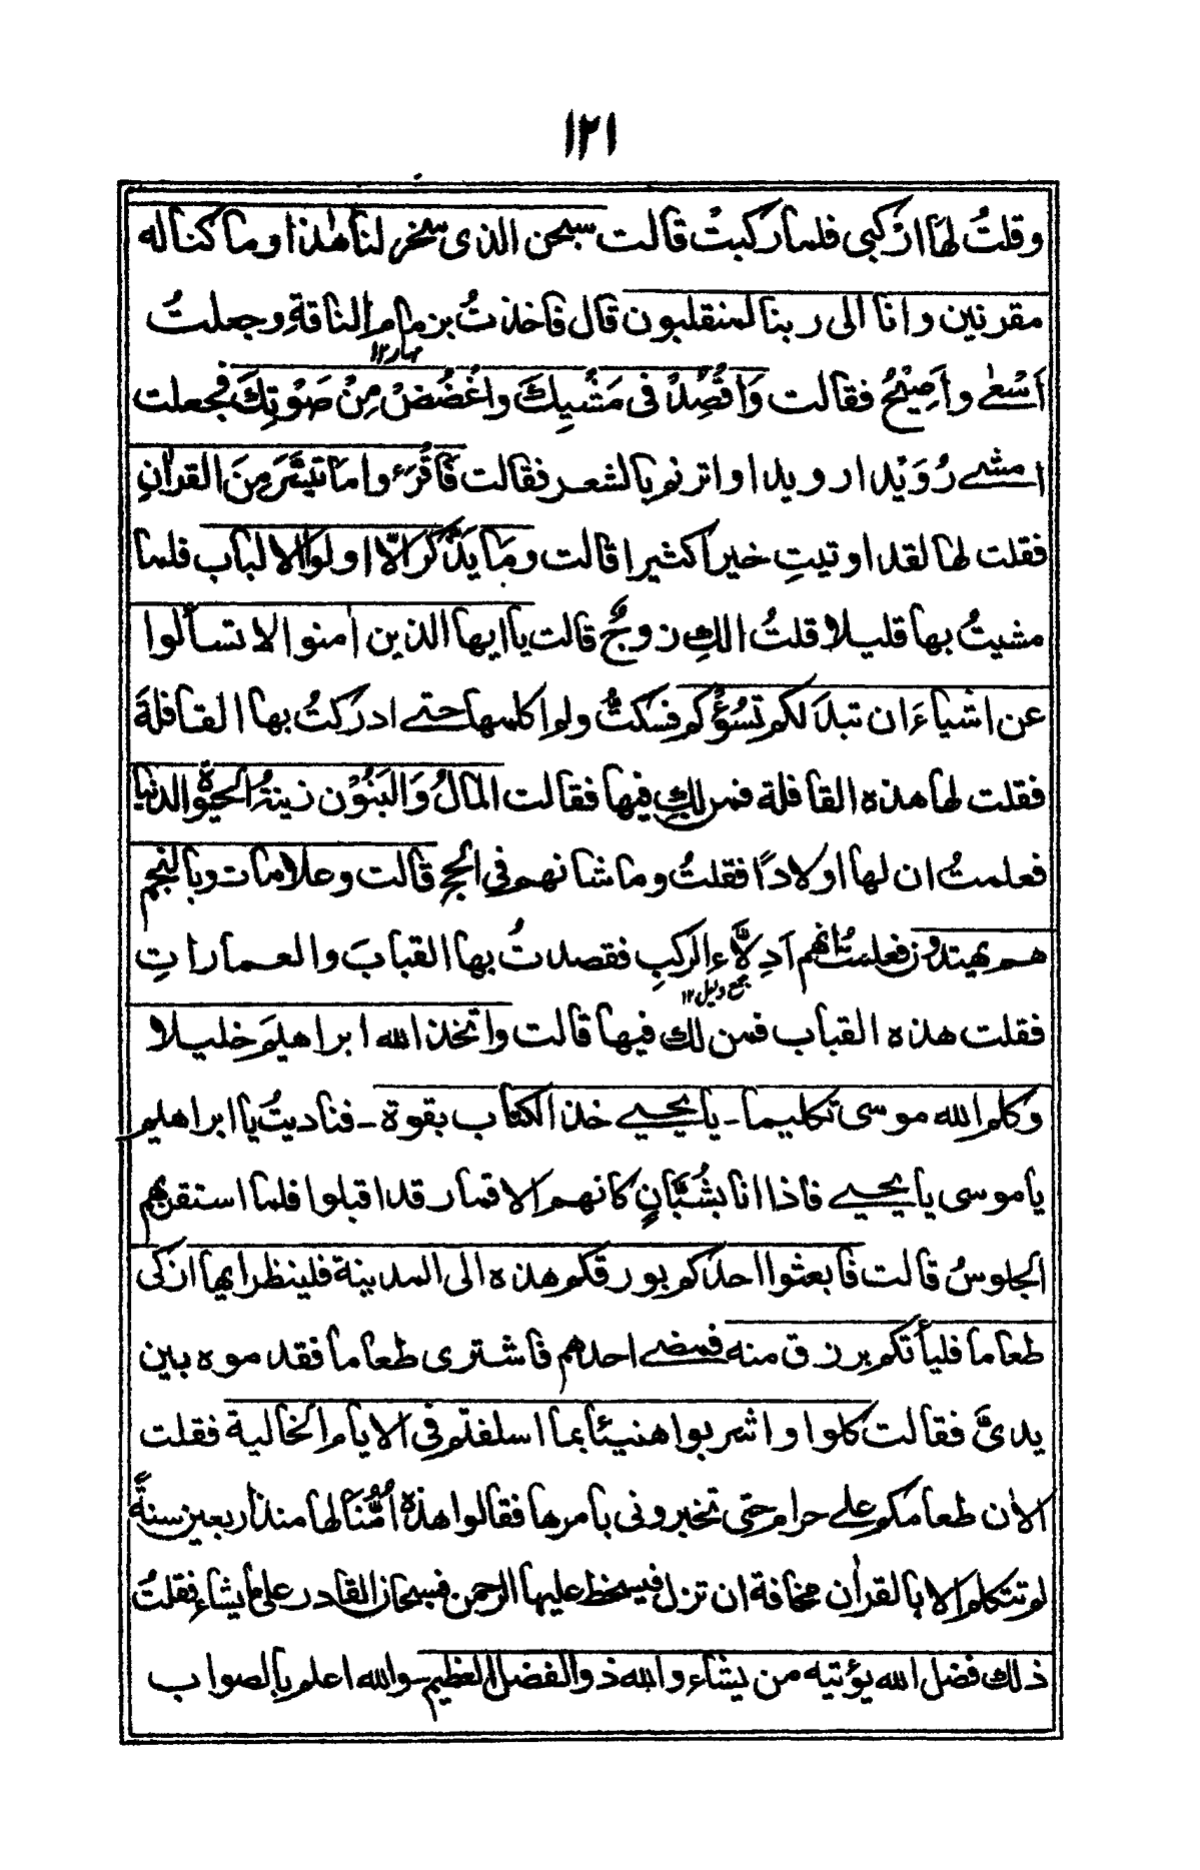 ١٢١
وقلتُ لها ارْكبي فلما ركبتْ قالت سبحن الذى سخر لنا هٰذا وما كنا له
مقرنين وانا الى ربنا لمنقلبون قال فاخذتُ بزمام الناقةِ وجعلتُ
مہار ١٢
اَسْعٰى واَصِيْحُ فقالت وَاقْصِدْ فى مَشْيِكَ واغْضُضْ مِنْ صَوْتِكَ فجعلت
امشے رُوَيْدا رويدا واترنم بالشعر فقالت فَاقْرَءوا ما تيَسَّرَ مِنَ القراٰنِ
فقلت لها لقد اوتيتِ خيرا كثيرا قالت وما يَذَّكَّرُ الَّا اولوا الالباب فلما
مشيتُ بها قليلا قلتُ الكِ زوجٌ قالت ياايها الذين اٰمنوا لا تسألوا
عن اشياءَ ان تبدَ لكم تسُؤْكم فسكتُّ ولم اكلمها حتے ادركتُ بها القافلةَ
فقلت لها هذه القافلة فمن لكِ فيها فقالت المالُ وَالبَنُوْن زينةُ الحيٰوة الدنيا
فعلمتُ ان لها اولادًا فقلتُ وما شانهم في الحج قالت وعلامات وبالنجم
هم يهتدون فعلمتُ انهم اَدِلَّاءِ الركبِ فقصدتُ بها القبابَ والعماراتِ
جمع دليل ١٢
فقلت هذه القباب فمن لك فيها قالت واتخذ الله ابراهيمَ خليلا
وكلم الله موسى تكليما - يا يحيے خذ الكتاب بقوة - فناديتُ يا ابراهيم
يا موسى يا يحيے فاذا انا بشُبَّانٍ كانهم الاقمار قد اقبلوا فلما استقربهم
الجلوسُ قالت فابعثوا احدكم بورقكم هذه الى المدينة فلينظر ايها ازكى
طعاما فليأتكم برزق منه فمضے احدهم فاشترى طعاما فقدموه بين
يدىَّ فقالت كلوا واشربوا هنيئا بما اسلفتم فى الايام الخالية فقلت
الاٰن طعامكم علے حرام حتى تخبرونى بامرها فقالوا هذه اُمُّنا لها منذ اربعين سنةً
لم تتكلم الا بالقراٰن مخافة ان تزل فيسخط عليها الرحمن فسبحان القادر على ما يشاء فقلتُ
ذلك فضل الله يؤتيه من يشاء والله ذو الفضل العظيم - والله اعلم بالصواب